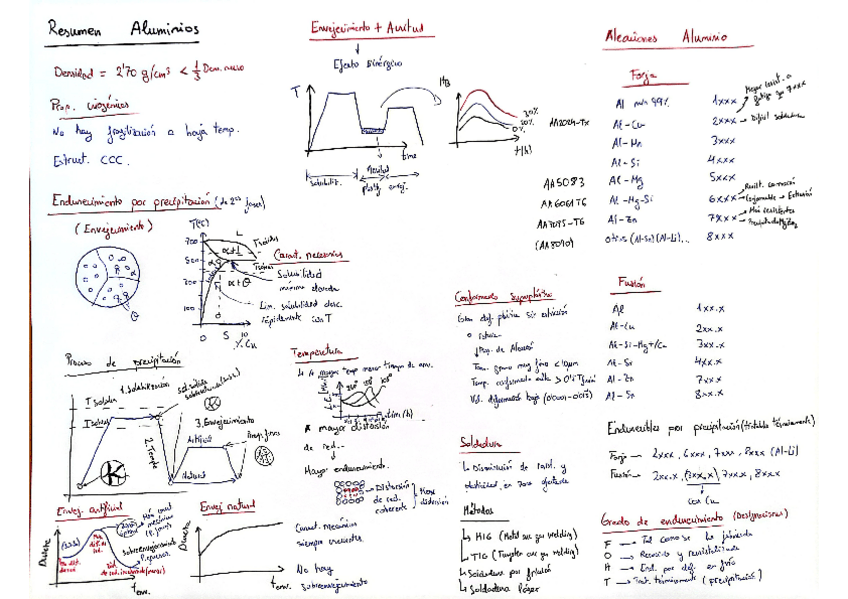 Resumen Aluminios
Densidad = 2'70 g/cm³ < 1/3 Den. acero
Prop. criogénicas
No hay fragilización a baja temp.
Estruct. CCC.
Endurecimiento por precipitación (de 2ªs fases)
(Envejecimiento)
θ
T(ºC)
700
500
300
100
L
α+L
α+θ
0
5
10
% Cu
Caract. necesarias
Solubilidad
máxima elevada
Lím. solubilidad desc.
rápidamente con T
Proceso de precipitación
T solidus
T solvus
1. Solubilización
2. Temple
3. Envejecimiento
Artificial
Natural
Envej. artificial
Dureza
t env.
Sobreenvejecimiento
Envej natural
Dureza
t env.
Caract. mecánicas
siempre crecientes
No hay
sobreenvejecimiento
Temperatura
A mayor temp menor tiempo de env.
tim (h)
A mayor distorsión
de red
Mayor endurecimiento.
Distorsión
de red.
coherente
Máxima
distorsión
Envejecimiento + Acritud
Efecto sinérgico
T
time
Solubiliz.
HB
30%
20%
0%
t(h)
AA2024-Tx
AA5083
AA6061 T6
AA7075-T6
(AA8090)
Conformado superplástico
Gran def. plástica sin estricción
Tam. grano muy fino < 10μm
Vel. deformación baja
Soldadura
Disminución de resist. y
ductilidad en zona afectada
Métodos
MIG (Metal arc gas welding)
TIG (Tungsten arc gas welding)
Soldadura por fricción
Soldadura láser
Aleaciones Aluminio
Forja
Al min 99% 1xxx
Al-Cu 2xxx Difícil soldadura
Al-Mn 3xxx
Al-Si 4xxx
Al-Mg 5xxx
Al-Mg-Si 6xxx
Al-Zn 7xxx
otros (Al-Sn)(Al-Li)... 8xxx
Fusión
Al 1xx.x
Al-Cu 2xx.x
Al-Si-Mg+/Cu 3xx.x
Al-Si 4xx.x
Al-Zn 7xx.x
Al-Sn 8xx.x
Endurecibles por precipitación (tratable térmicamente)
Forja → 2xxx, 6xxx, 7xxx, 8xxx (Al-Li)
Fusión → 2xx.x, (3xx.x), 7xx.x, 8xx.x
con Cu
Grado de endurecimiento (Designaciones)
F → Tal como se ha fabricado
O → Recocido y recristalizado
H → End. por def. en frío
T → Trat. térmicamente (precipitación)